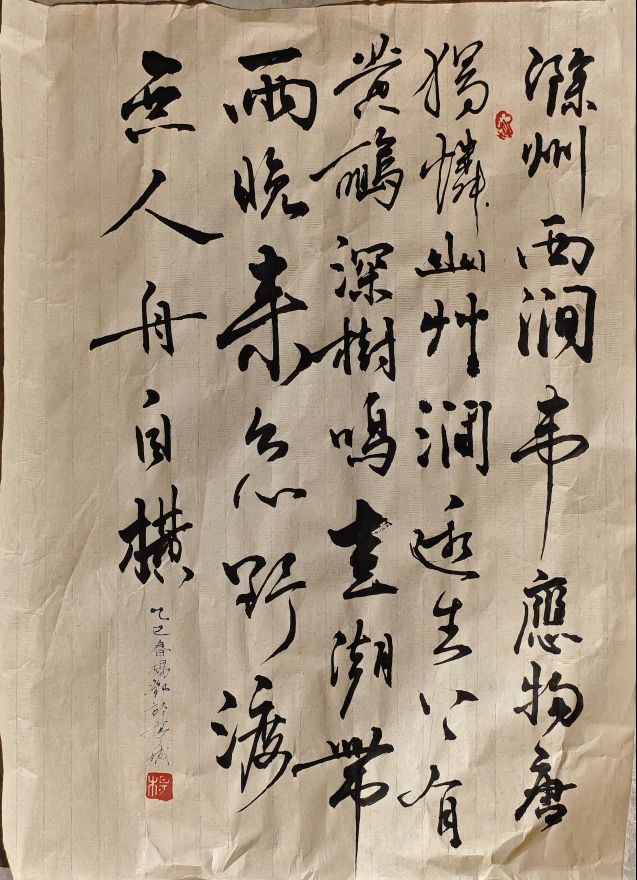 滁州西澗韦應物唐
獨憐幽艸澗邊生上有
黄鸝深樹鳴春潮帶
雨晚來急野渡
無人舟自横
乙巳春楊於城